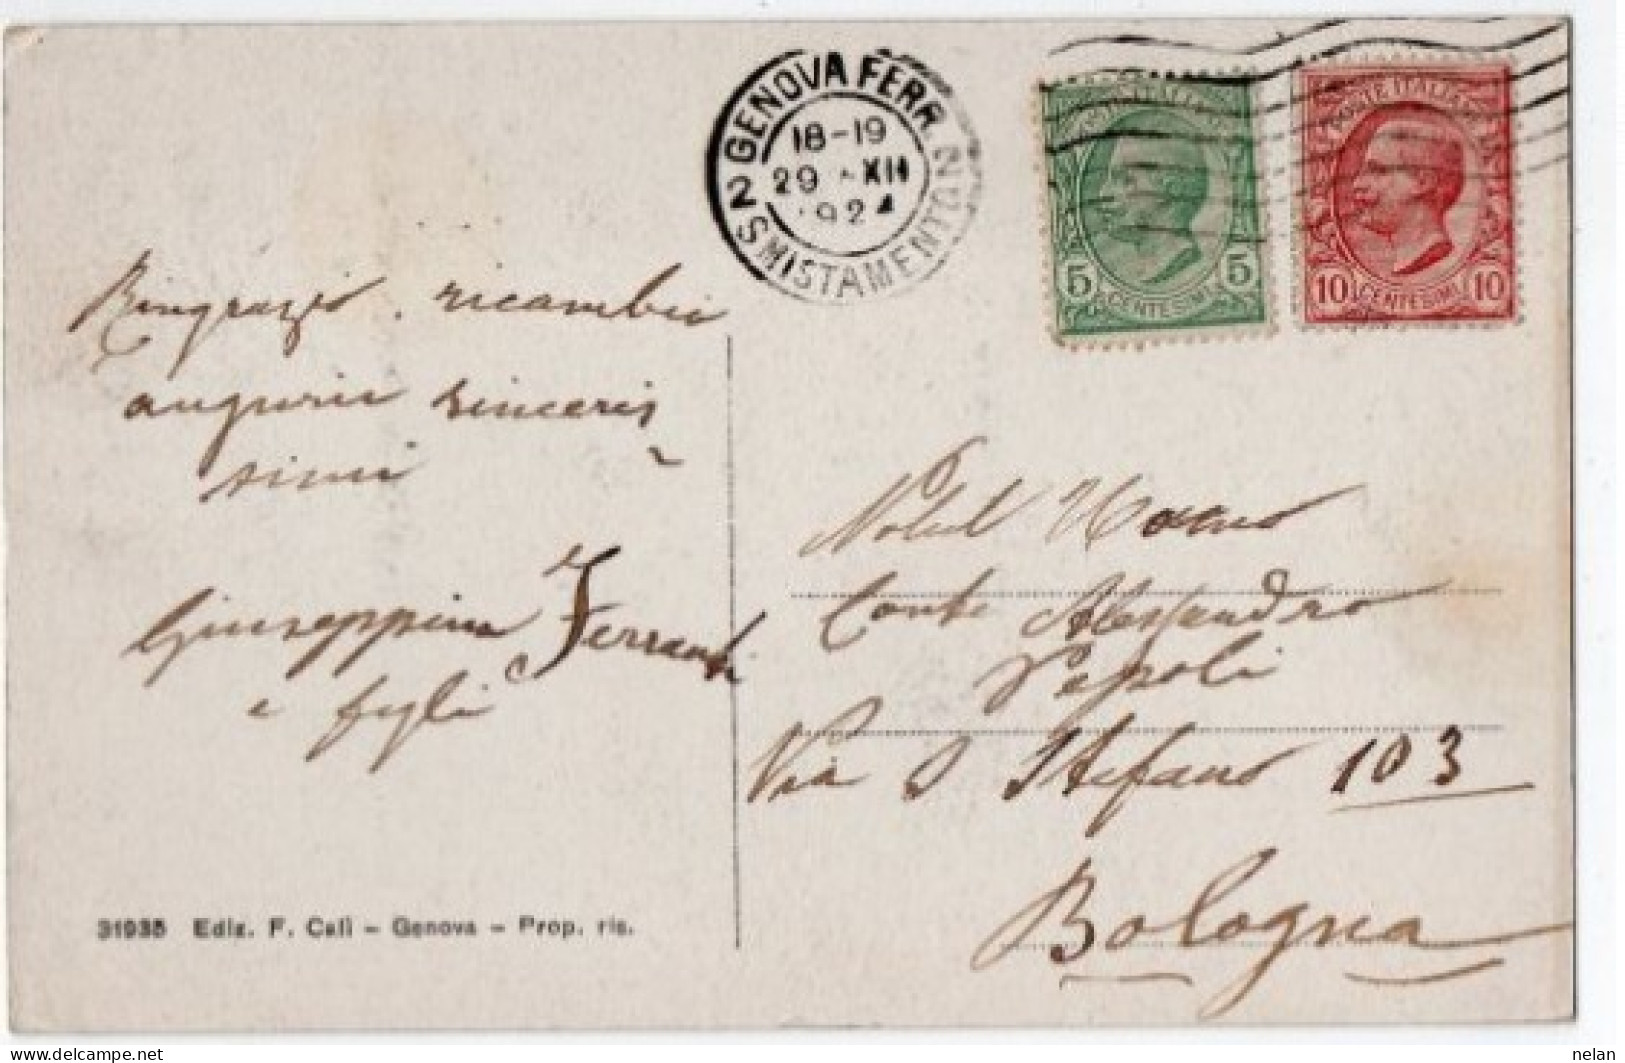 GENOVA FERR. N2
18-19
29 XII
924
N2 SMISTAMENTO
POSTE ITALIANE
5 CENTESIMI 5
POSTE ITALIANE
10 CENTESIMI 10
Ringrazio, ricambio
augurii sinceris
simi
Giuseppina Ferranti
e figli
Nobil Uomo
Conte Alessandro
Pepoli
Via S Stefano 103
Bologna
31935 Ediz. F. Calì - Genova - Prop. ris.
nelan